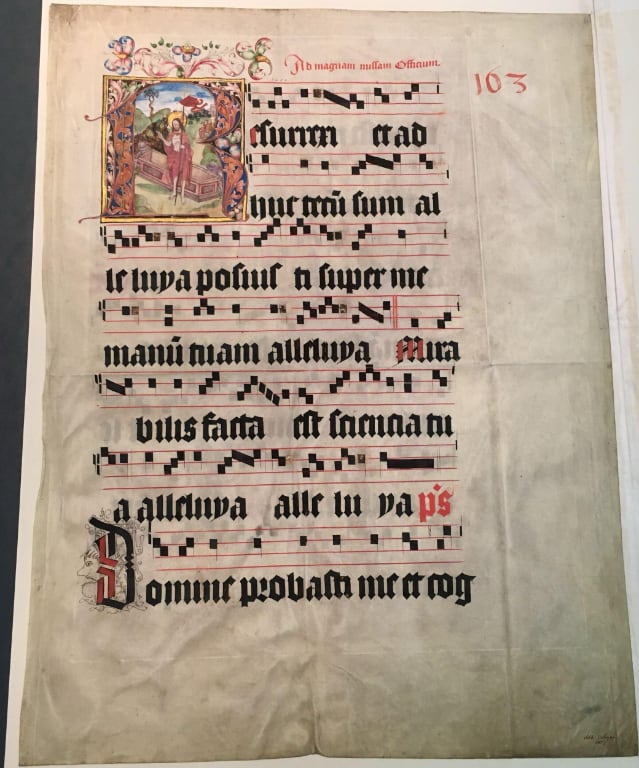 Ad magnam missam Officium.
103
esurrexi et ad
huc tecū sum al
le luya posuis ti super me
manū tuam alleluya Mira
bilis facta est sciencia tu
a alleluya alle lu ya p̄s
Domine probasti me et cog